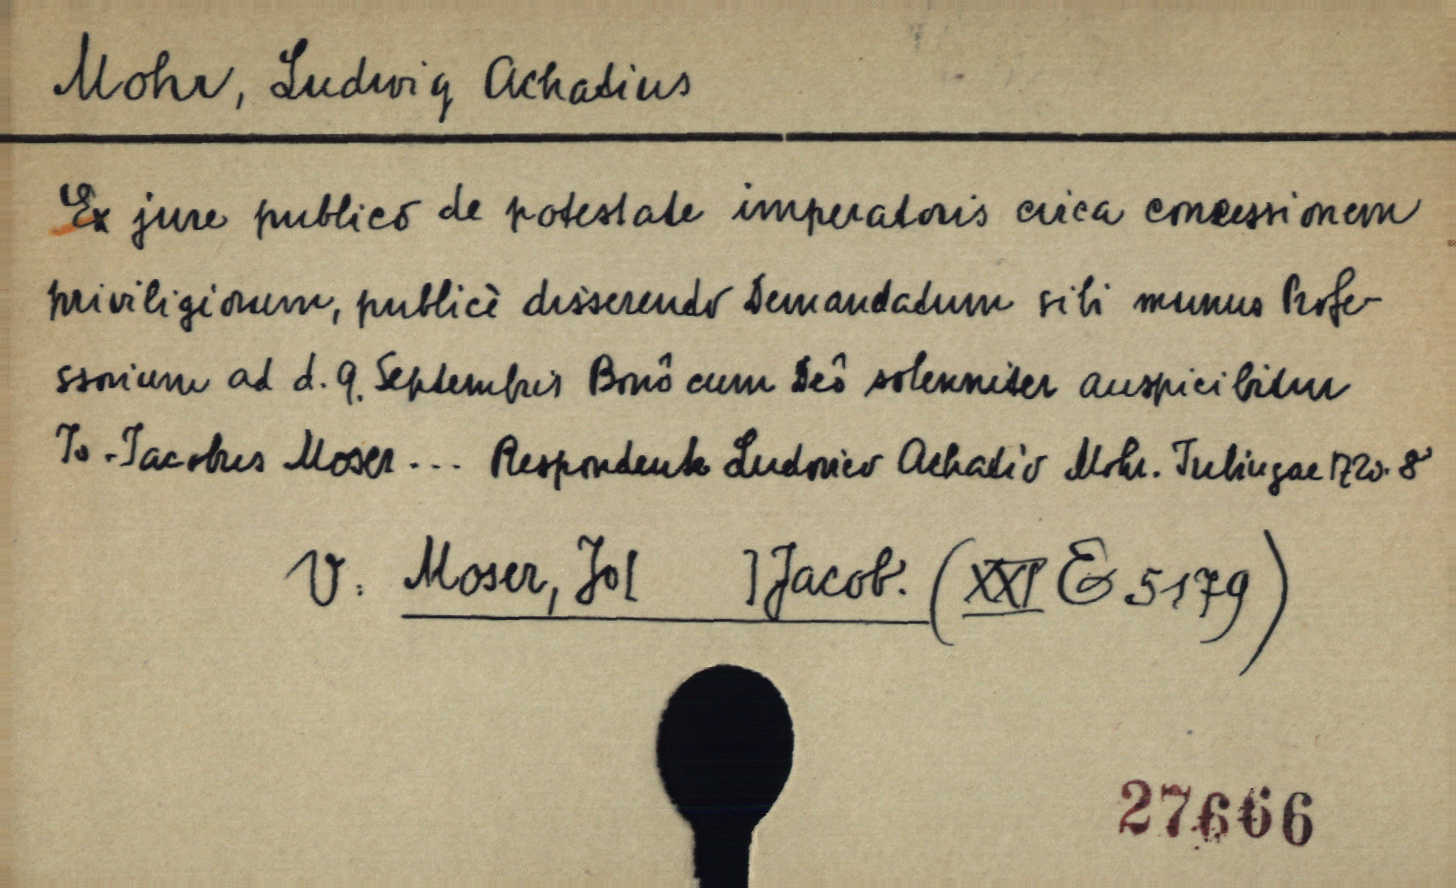 Mohr, Ludwig Achatius
Ex jure publicô de potestate imperatoris circa concessionem
priviligiorum, publicè disserendo Demandatum sibi munus Profe-
ssorium ad d. 9. Septembris Bonô cum Deô solemniter auspicibitur
Jo. Jacobus Moser ... Respondente Ludovico Achatio Mohr. Tubingae 1720. 8°
V. Moser, Jo[ ] Jacob. (XXI E 5179)
27666